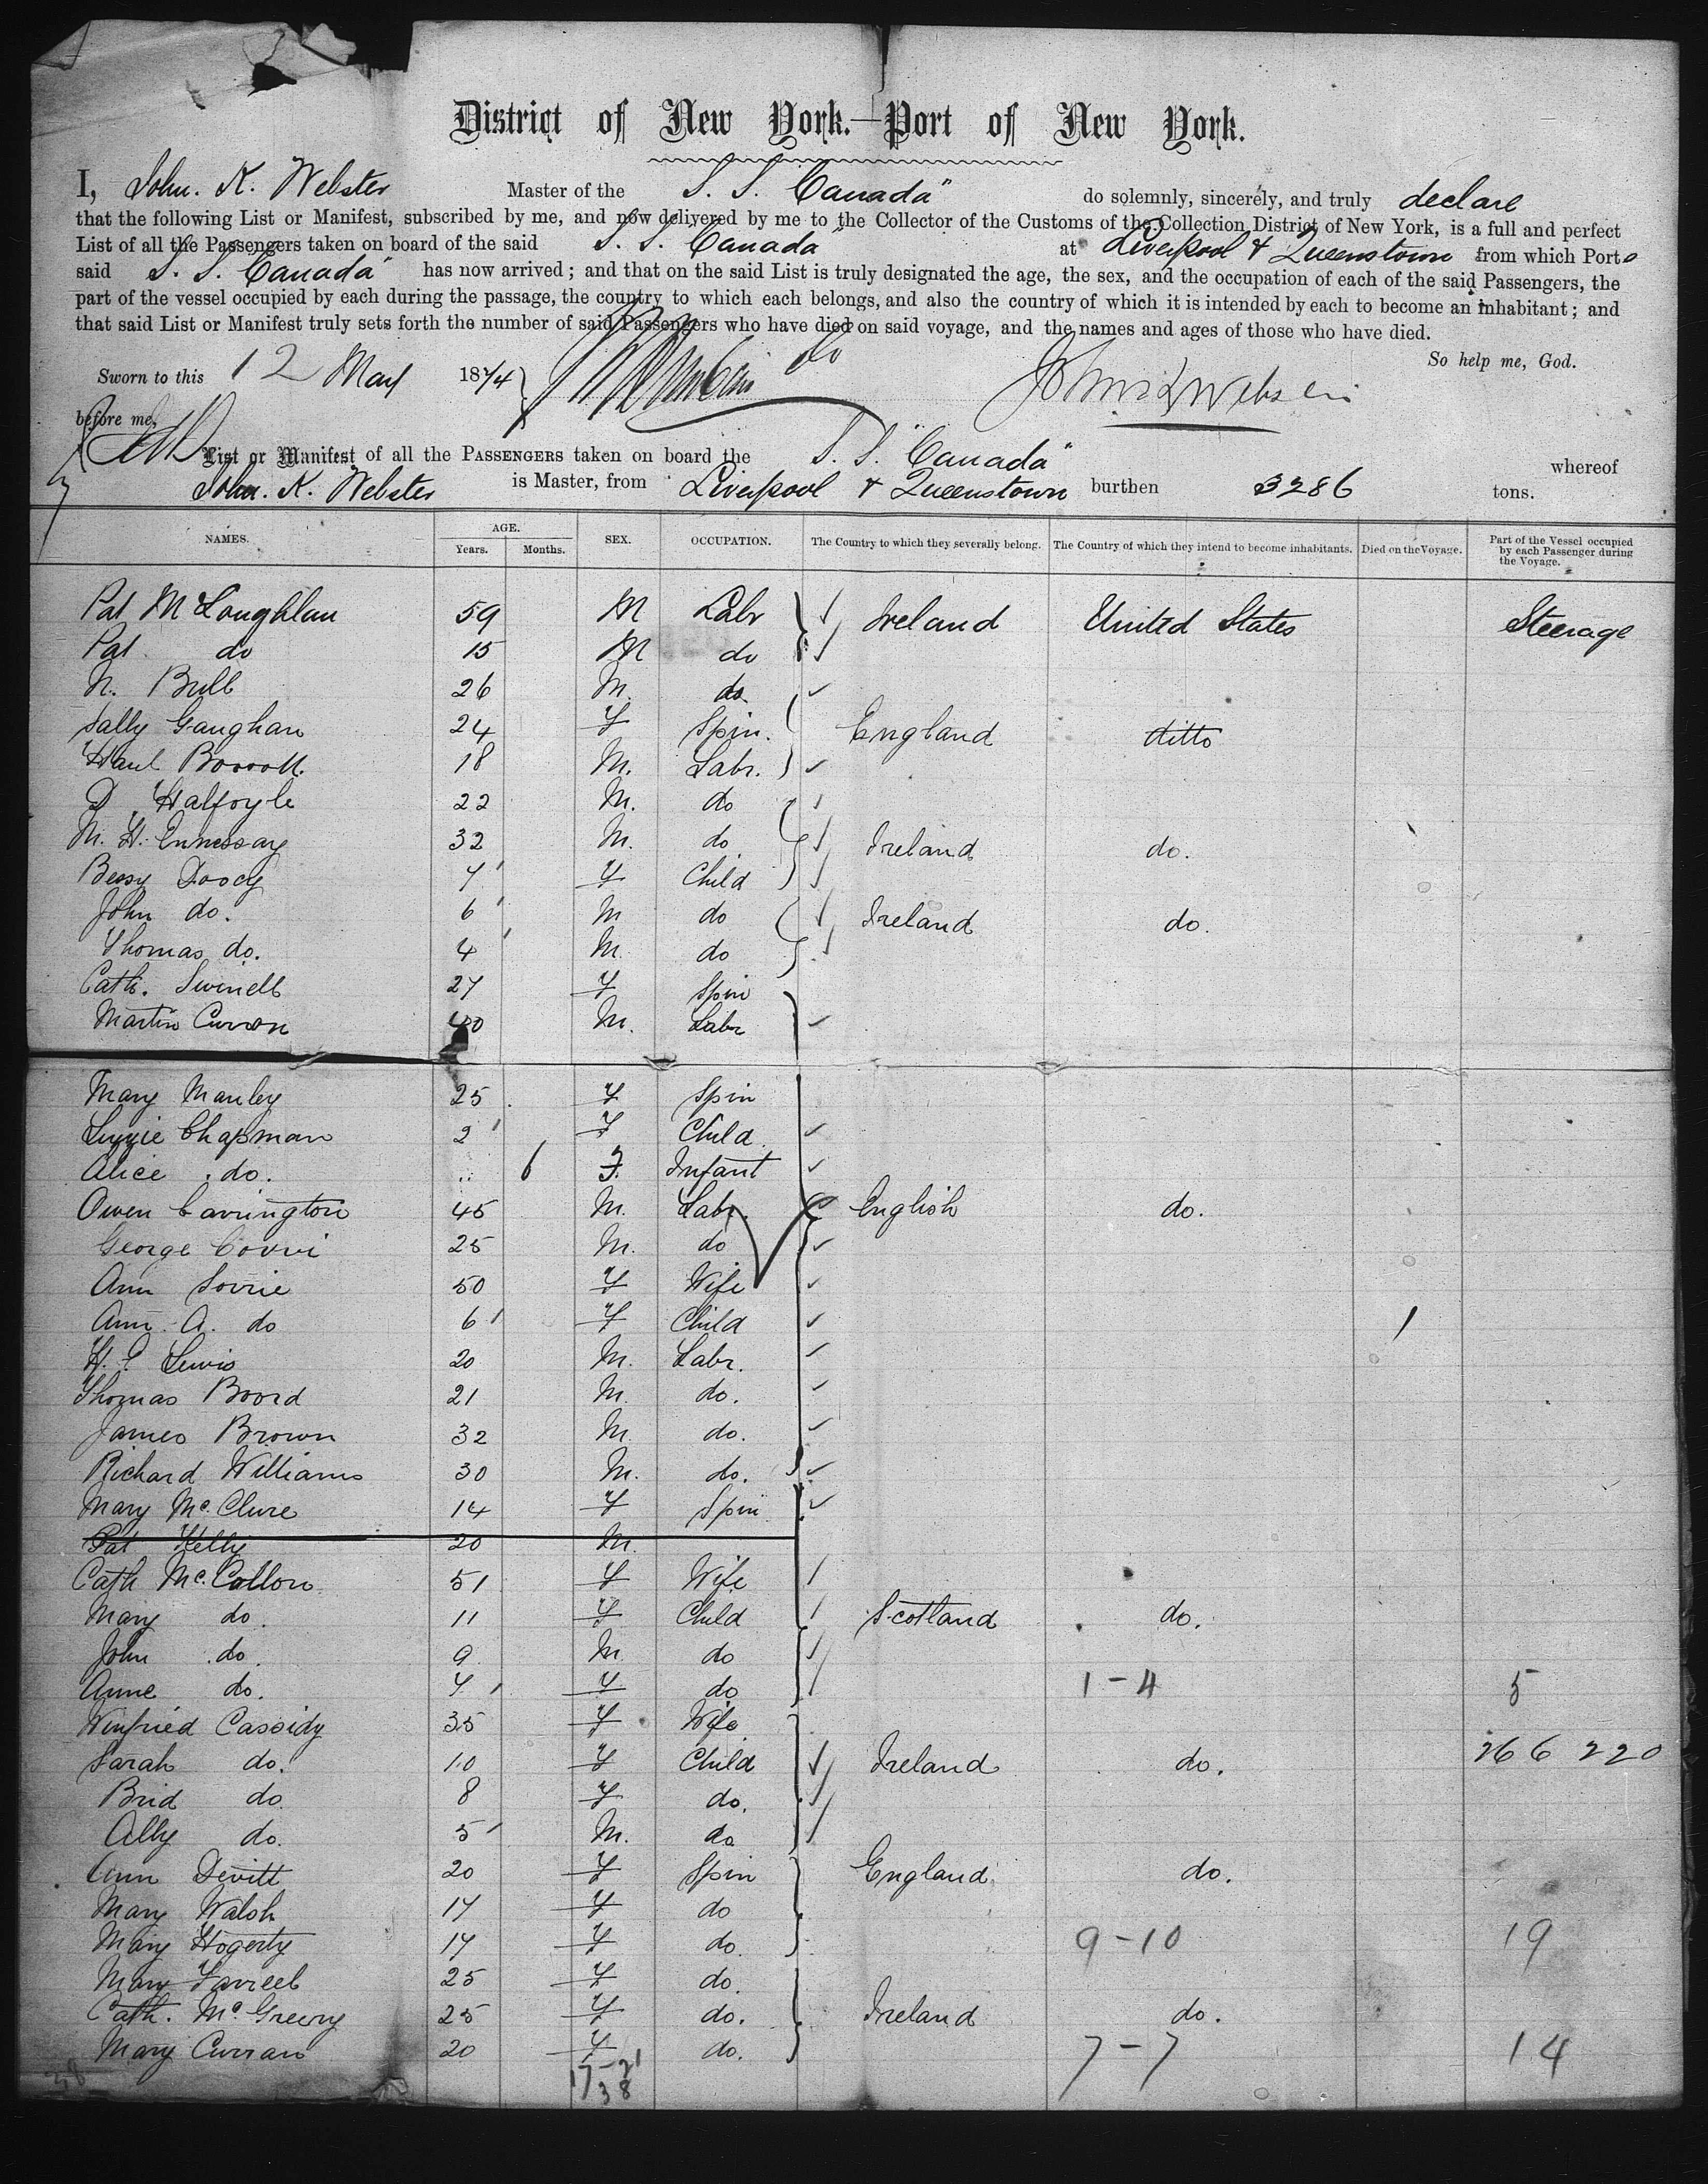 District of New York.—Port of New York.
I, John. K. Webster Master of the S. S. "Canada" do solemnly, sincerely, and truly declare
that the following List or Manifest, subscribed by me, and now delivered by me to the Collector of the Customs of the Collection District of New York, is a full and perfect
List of all the Passengers taken on board of the said S. S. "Canada" at Liverpool & Queenstown from which Port
said S. S. "Canada" has now arrived; and that on the said List is truly designated the age, the sex, and the occupation of each of the said Passengers, the
part of the vessel occupied by each during the passage, the country to which each belongs, and also the country of which it is intended by each to become an inhabitant; and
that said List or Manifest truly sets forth the number of said Passengers who have died on said voyage, and the names and ages of those who have died.
So help me, God.
Sworn to this 12 May 1874
before me,
List or Manifest of all the PASSENGERS taken on board the S. S. "Canada" whereof
John. K. Webster is Master, from Liverpool & Queenstown burthen 3286 tons.
NAMES. AGE. Years. Months. SEX. OCCUPATION. The Country to which they severally belong. The Country of which they intend to become inhabitants. Died on the Voyage. Part of the Vessel occupied by each Passenger during the Voyage.
Pat McLoughlan 59 M Labr Ireland United States Steerage
Pat do 15 M do
N. Bull 26 M. do
Sally Gaughan 24 F Spin. England ditto
18 M. Labr.
D Halfoyle 22 M. do
M. H. Ennessay 32 M. do Ireland do.
Bessy Doody 7 F Child
John do. 6 M do Ireland do.
Thomas do. 4 M. do
Cath. Swindell 27 F Spin
Martin Curran 40 M. Labr
Mary Manley 25 F Spin
Lizzie Chapman 2 F Child
Alice do. 6 F. Infant
Owen Carrington 45 M. Labr. English do.
George 25 M. do
Ann Sorrie 50 F Wife
Ann A. do 6 F Child
H. P. Lewis 20 M. Labr.
Thomas Boord 21 M. do.
James Brown 32 M. do.
Richard Williams 30 M. do.
Mary Mc.Clure 14 F Spin
Pat Kelly 20 M.
Cath Mc.Collon 51 F Wife
Mary do. 11 F Child Scotland do.
John do. 9 M. do
Anne do. 7 F do 1-4 5
Winfried Cassidy 35 F Wife
Sarah do. 10 F Child Ireland do. 266 220
Brid do. 8 F do.
Ally do. 5 M. do
Ann Devitt 20 F Spin England do.
Mary Walsh 17 F do
Mary Hogerty 17 F do. 9-10 19
Mary Farrell 25 F do.
Cath. Mc.Greevy 25 F do. Ireland do.
Mary Curran 20 F do. 7-7 14
17-21
38 38